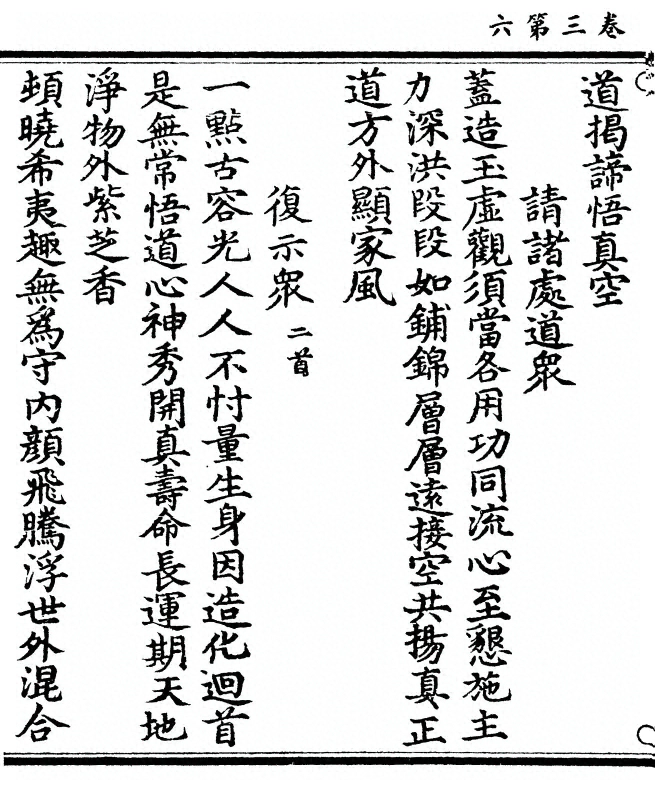 卷三第六
道揭諦悟真空
請諸處道衆
蓋造玉虛觀須當各用功同流心至懇施主
力深洪段段如鋪錦層層遠接空共揚真正
道方外顯家風
復示衆二首
一點古容光人人不忖量生身因造化迴首
是無常悟道心神秀開真壽命長運期天地
淨物外紫芝香
頓曉希夷趣無爲守内顔飛騰浮世外混合